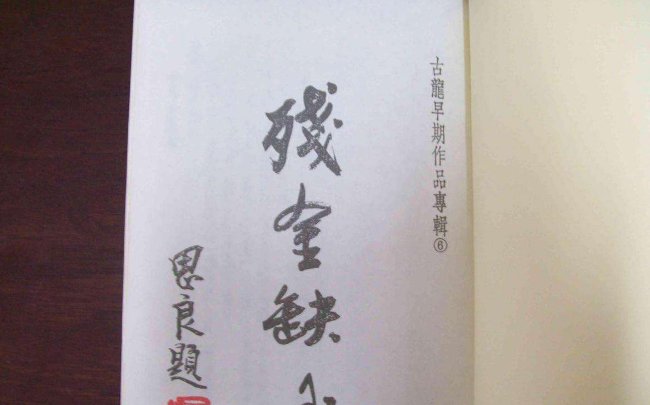 古龍早期作品專輯⑥
殘金缺
思良題